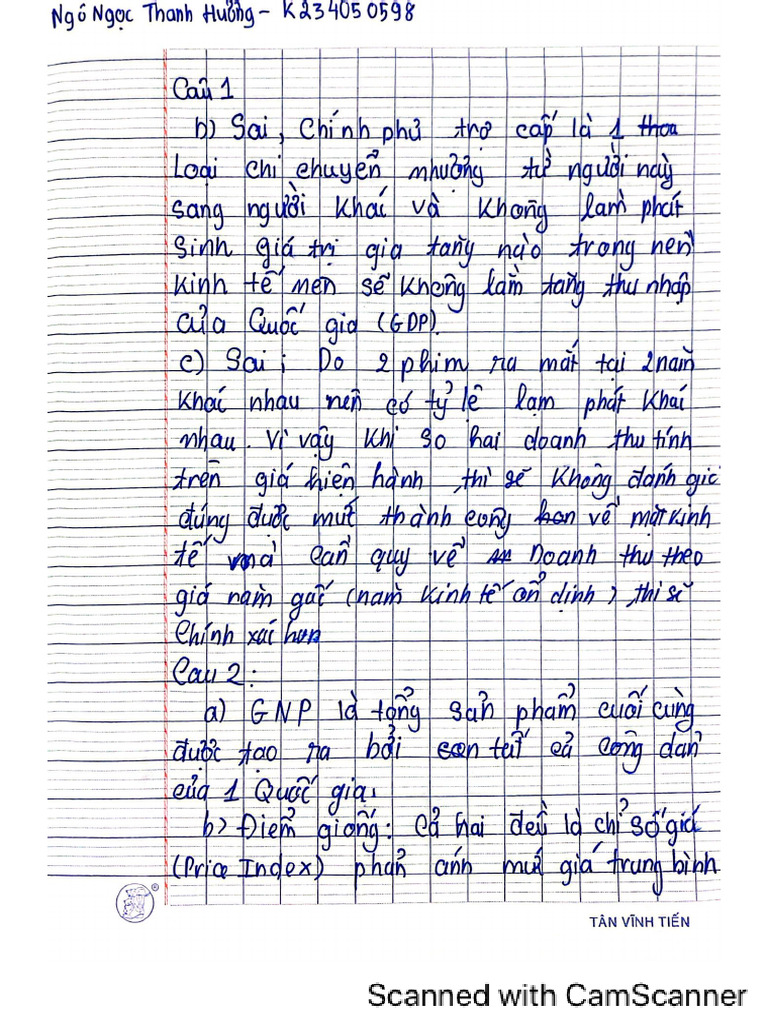 Ngô Ngọc Thanh Hường - K234050598
Câu 1
b) Sai, Chính phủ trợ cấp là 1 thoa
Loại chi chuyển nhượng từ người này
sang người khác và không làm phát
sinh giá trị gia tăng nào trong nền
kinh tế nên sẽ không làm tăng thu nhập
của Quốc gia (GDP).
c) Sai; Do 2 phim ra mắt tại 2 năm
khác nhau nên có tỷ lệ lạm phát khác
nhau. Vì vậy khi so hai doanh thu tính
trên giá hiện hành, thì sẽ không đánh giá
đúng được mức thành công hơn về mặt kinh
tế mà cần quy về Doanh thu theo
giá năm gốc (năm kinh tế ổn định), thì sẽ
Chính xác hơn
Câu 2:
a) GNP là tổng sản phẩm cuối cùng
được tạo ra bởi con tất cả công dân
của 1 Quốc gia.
b) Điểm giống: Cả hai đều là chỉ số giá
(Price Index) phản ánh mức giá trung bình
TÂN VĨNH TIẾN
Scanned with CamScanner